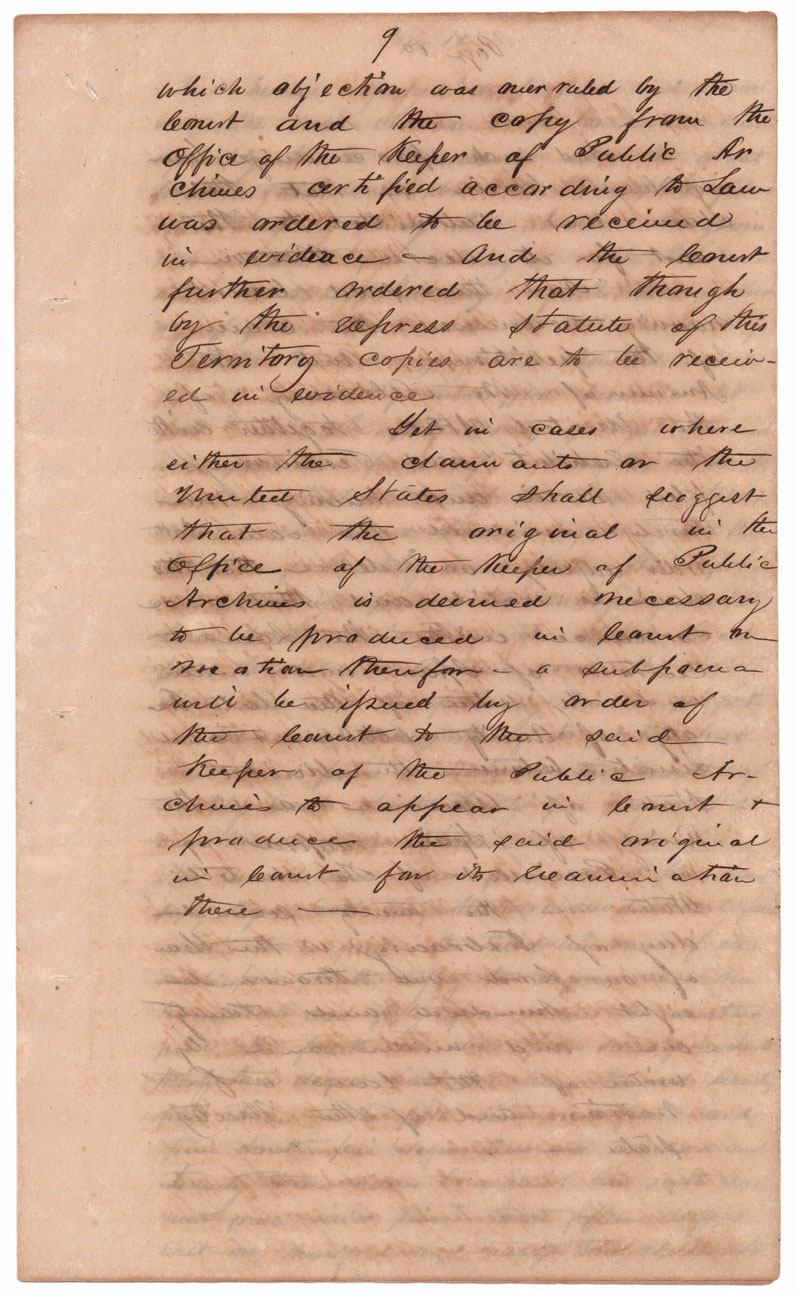 9
which objection was overruled by the
Court and the copy from the
Office of the Keeper of Public Ar
chives certified according to Law
was ordered to be received
in evidence — And the Court
further ordered that though
by the express statute of this
Territory copies are to be receiv-
ed in evidence
Yet in cases where
either the claimants or the
United States shall suggest
that the original in the
Office of the Keeper of Public
Archives is deemed necessary
to be produced in Court on
motion therefor — a subpoena
will be issued by order of
the Court to the said
Keeper of the Public Ar-
chives to appear in Court +
produce the said original
in Court for its examination
there —